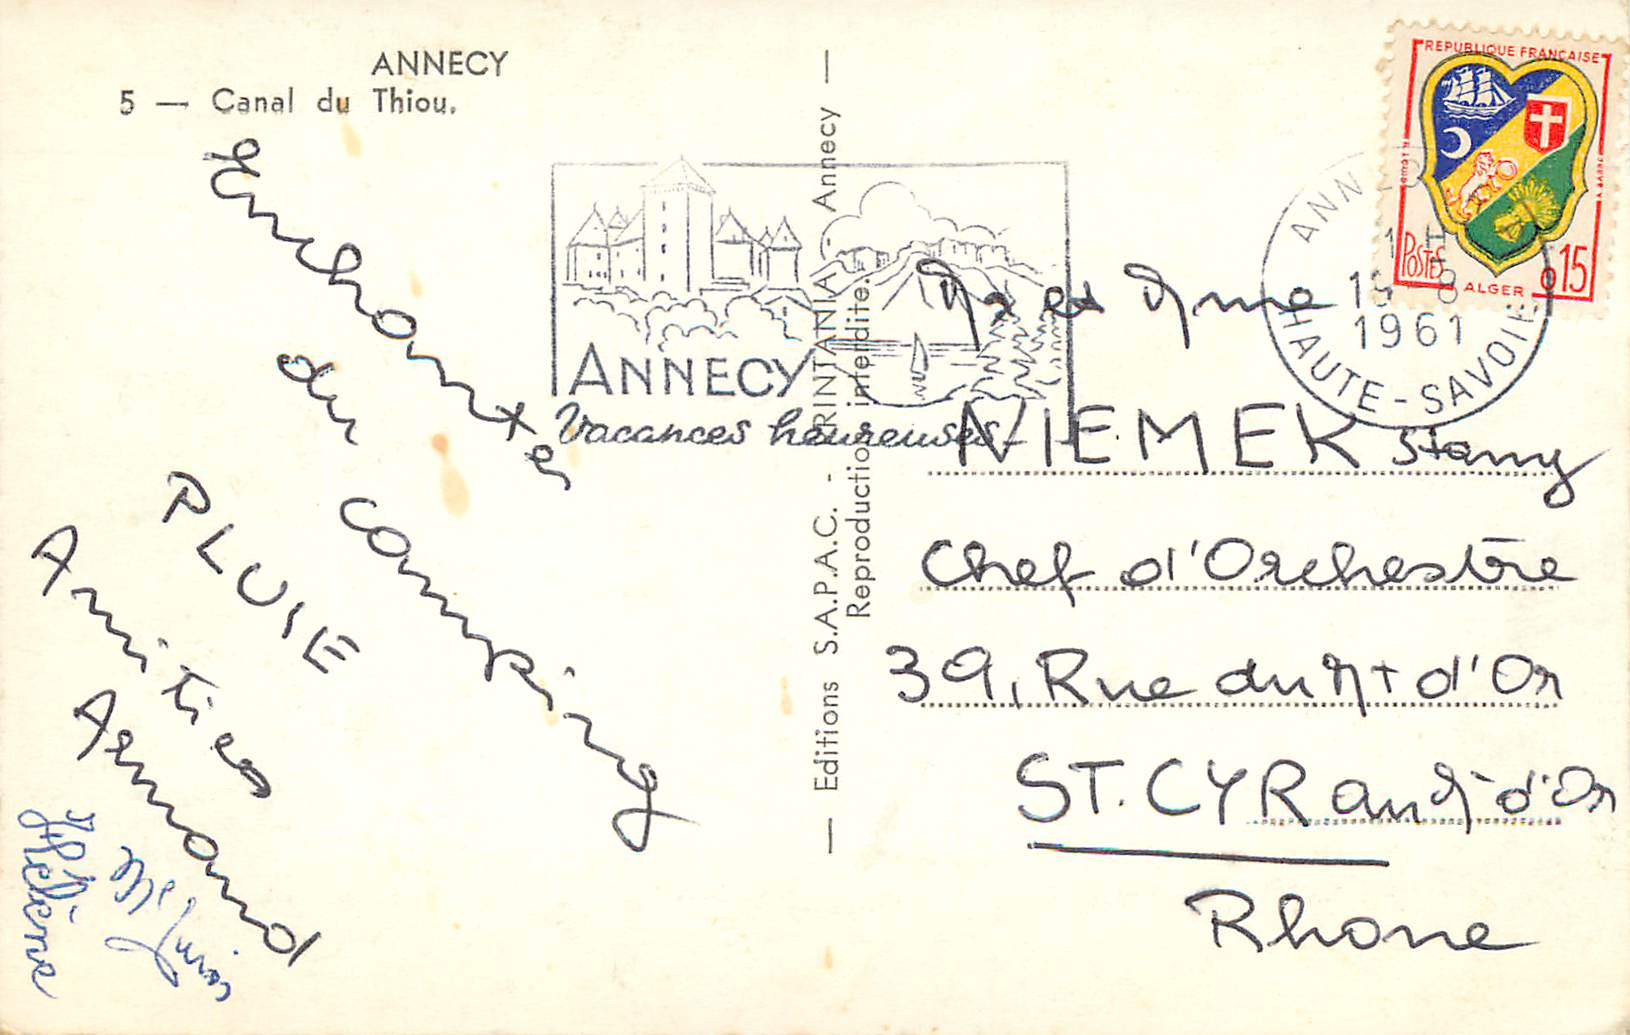 ANNECY
5 — Canal du Thiou.
Enchantés
du camping
PLUIE
Amitiés
Armand
Hélène
Editions S.A.P.A.C. - PRINTANIA - Annecy
Reproduction interdite.
ANNECY
Vacances heureuses
REPUBLIQUE FRANÇAISE
POSTES
ALGER
0,15
ANNECY
1961
HAUTE-SAVOIE
Mr et Mme
NIEMEK Stany
Chef d'Orchestre
39, Rue du Mt d'Or
ST. CYR au Mt d'Or
Rhone